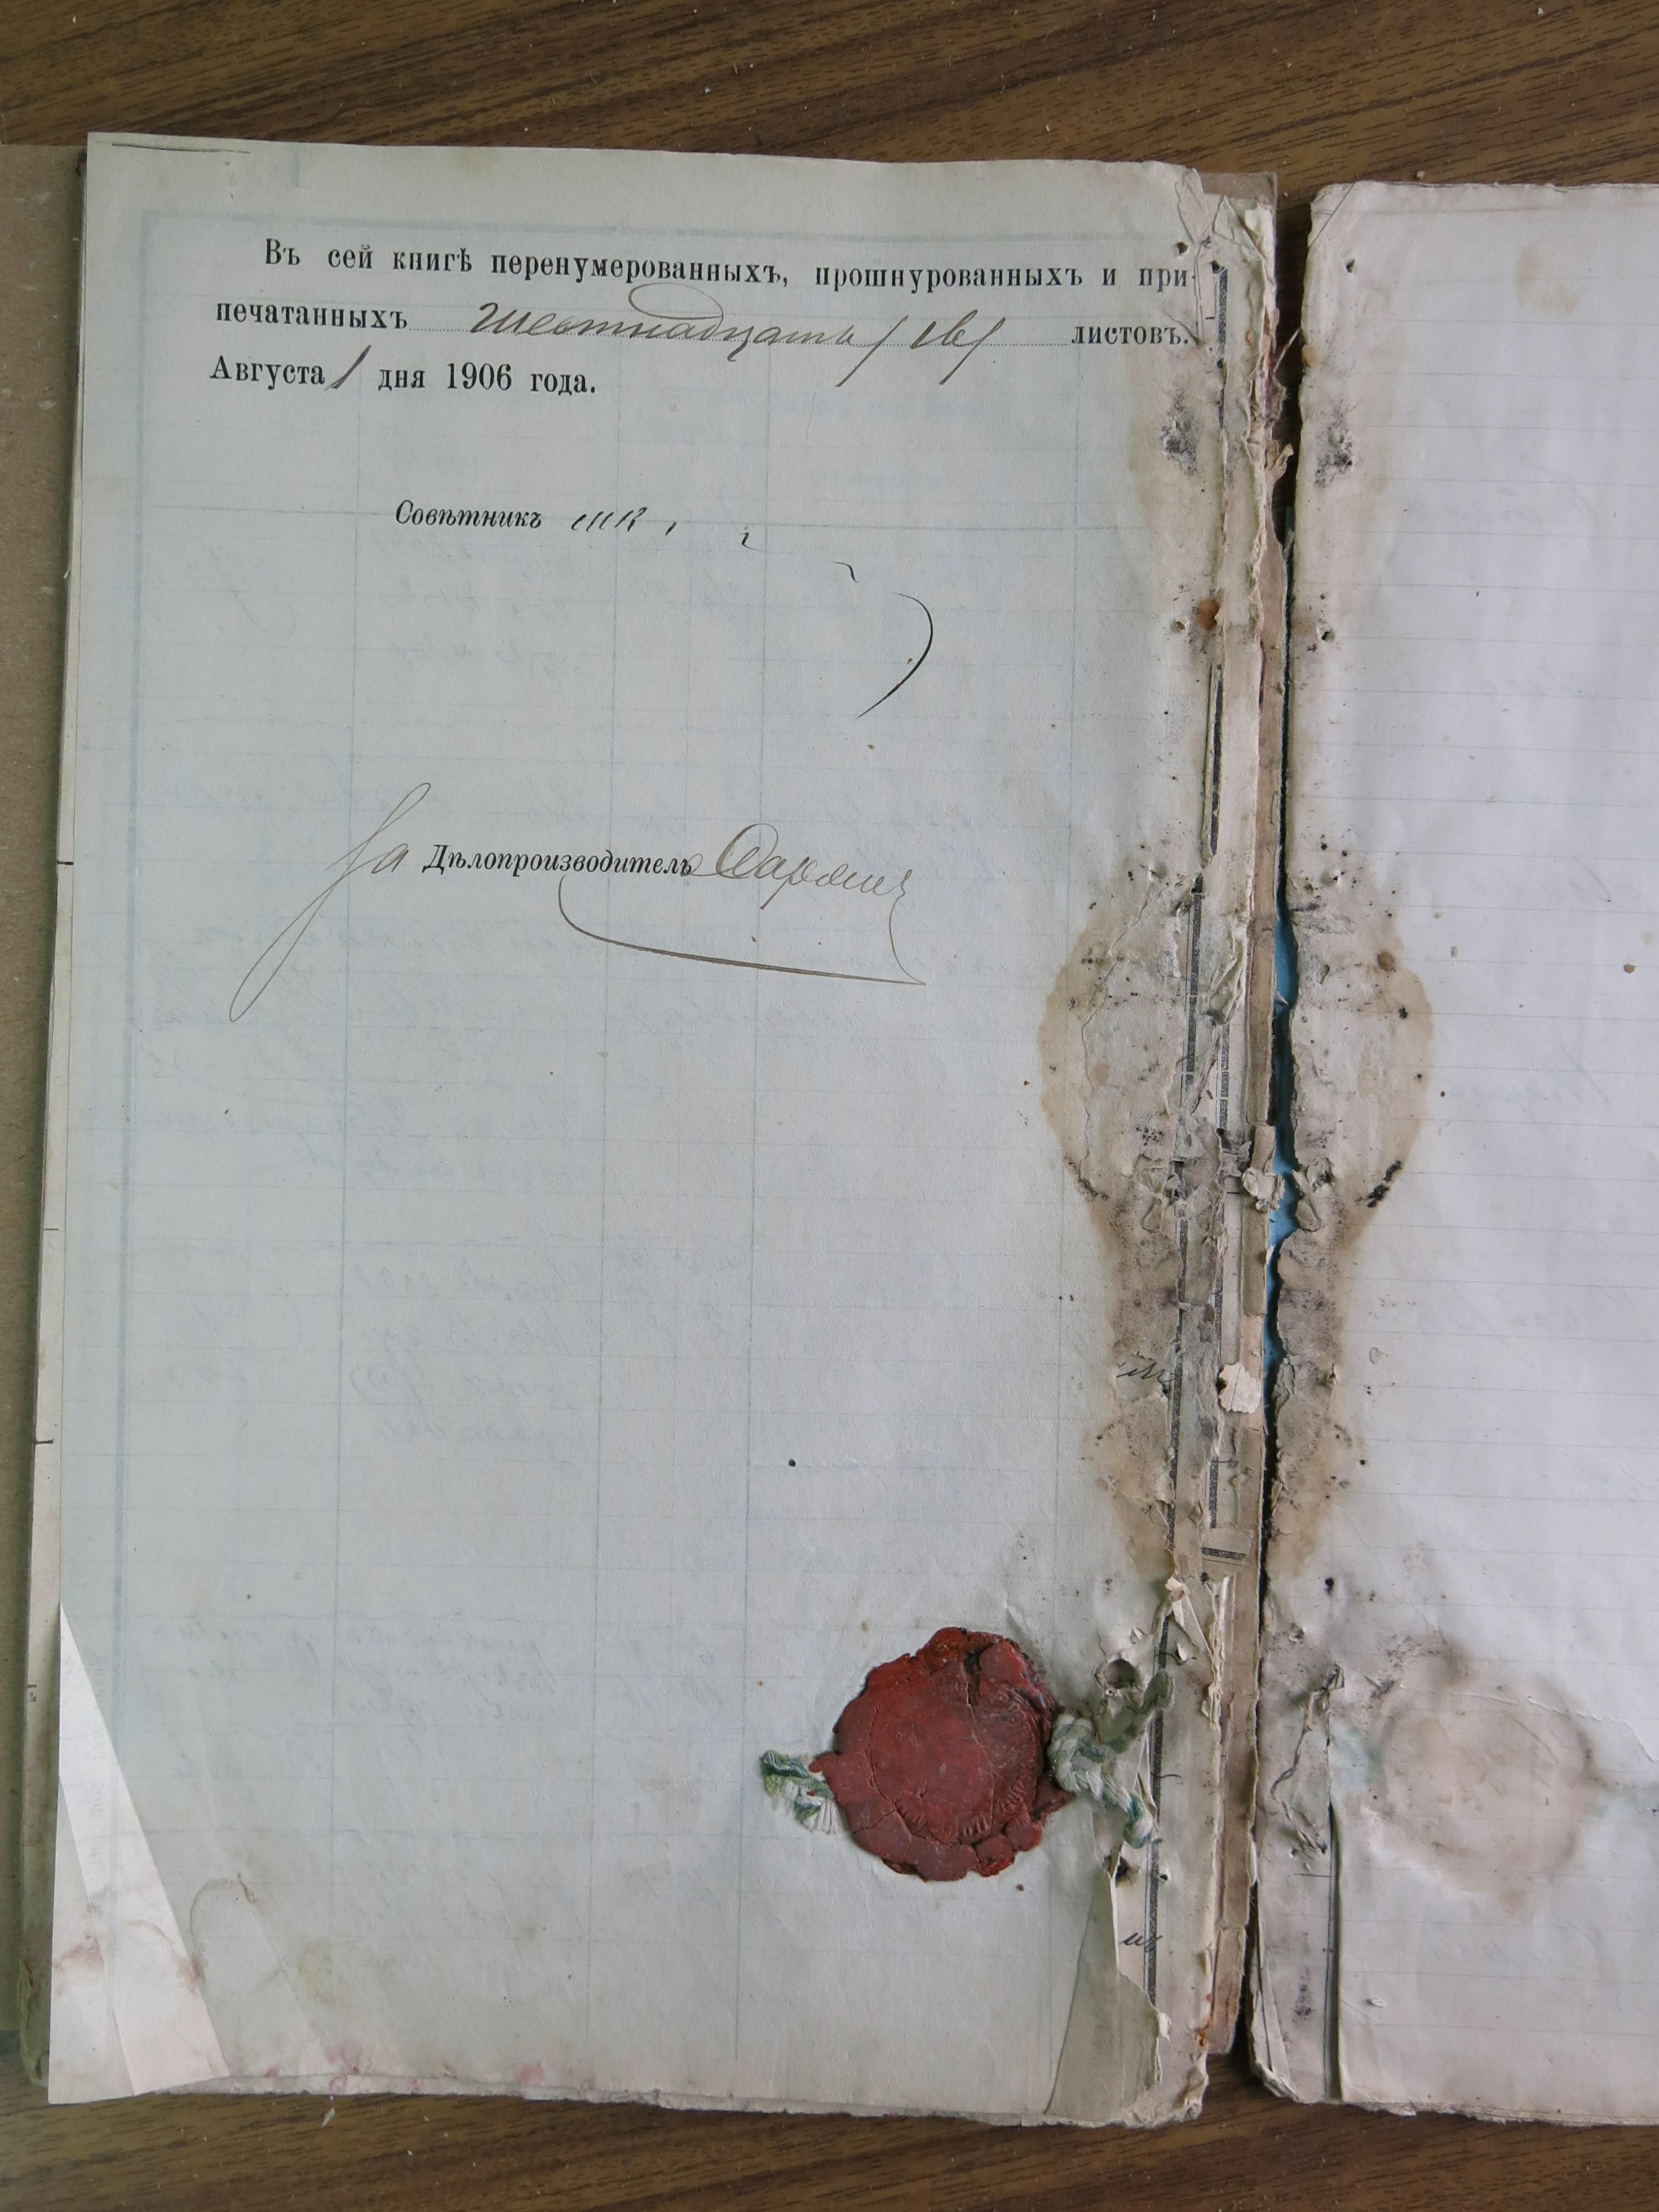 Въ сей книгѣ перенумерованныхъ, прошнурованныхъ и при-
печатанныхъ шестнадцать /16/ листовъ.
Августа 1 дня 1906 года.
Совѣтникъ
За Дѣлопроизводитель